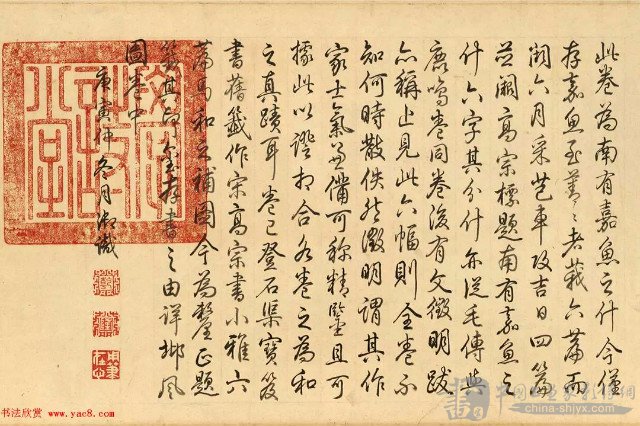 此卷為南有嘉魚之什今僅
存嘉魚至菁〻者莪六篇而
闕六月采芑車攻吉日四篇
並闕高宗標題南有嘉魚之
什六字其分什亦從毛傳與
鹿鳴卷同卷後有文徵明跋
亦稱止見此六幅則全卷不
知何時散佚然徵明謂其作
家士氣兼備可稱精鑒且可
據此以證相合各卷之為和
之真蹟耳卷已登石渠寶笈
書舊籤作宋高宗書小雅六
篇馬和之補圖今為釐正題
籤其存書之由詳邶風
圖卷中
庚寅仲冬月御識
书法欣赏 www.yac8.com
china-shjyx.com